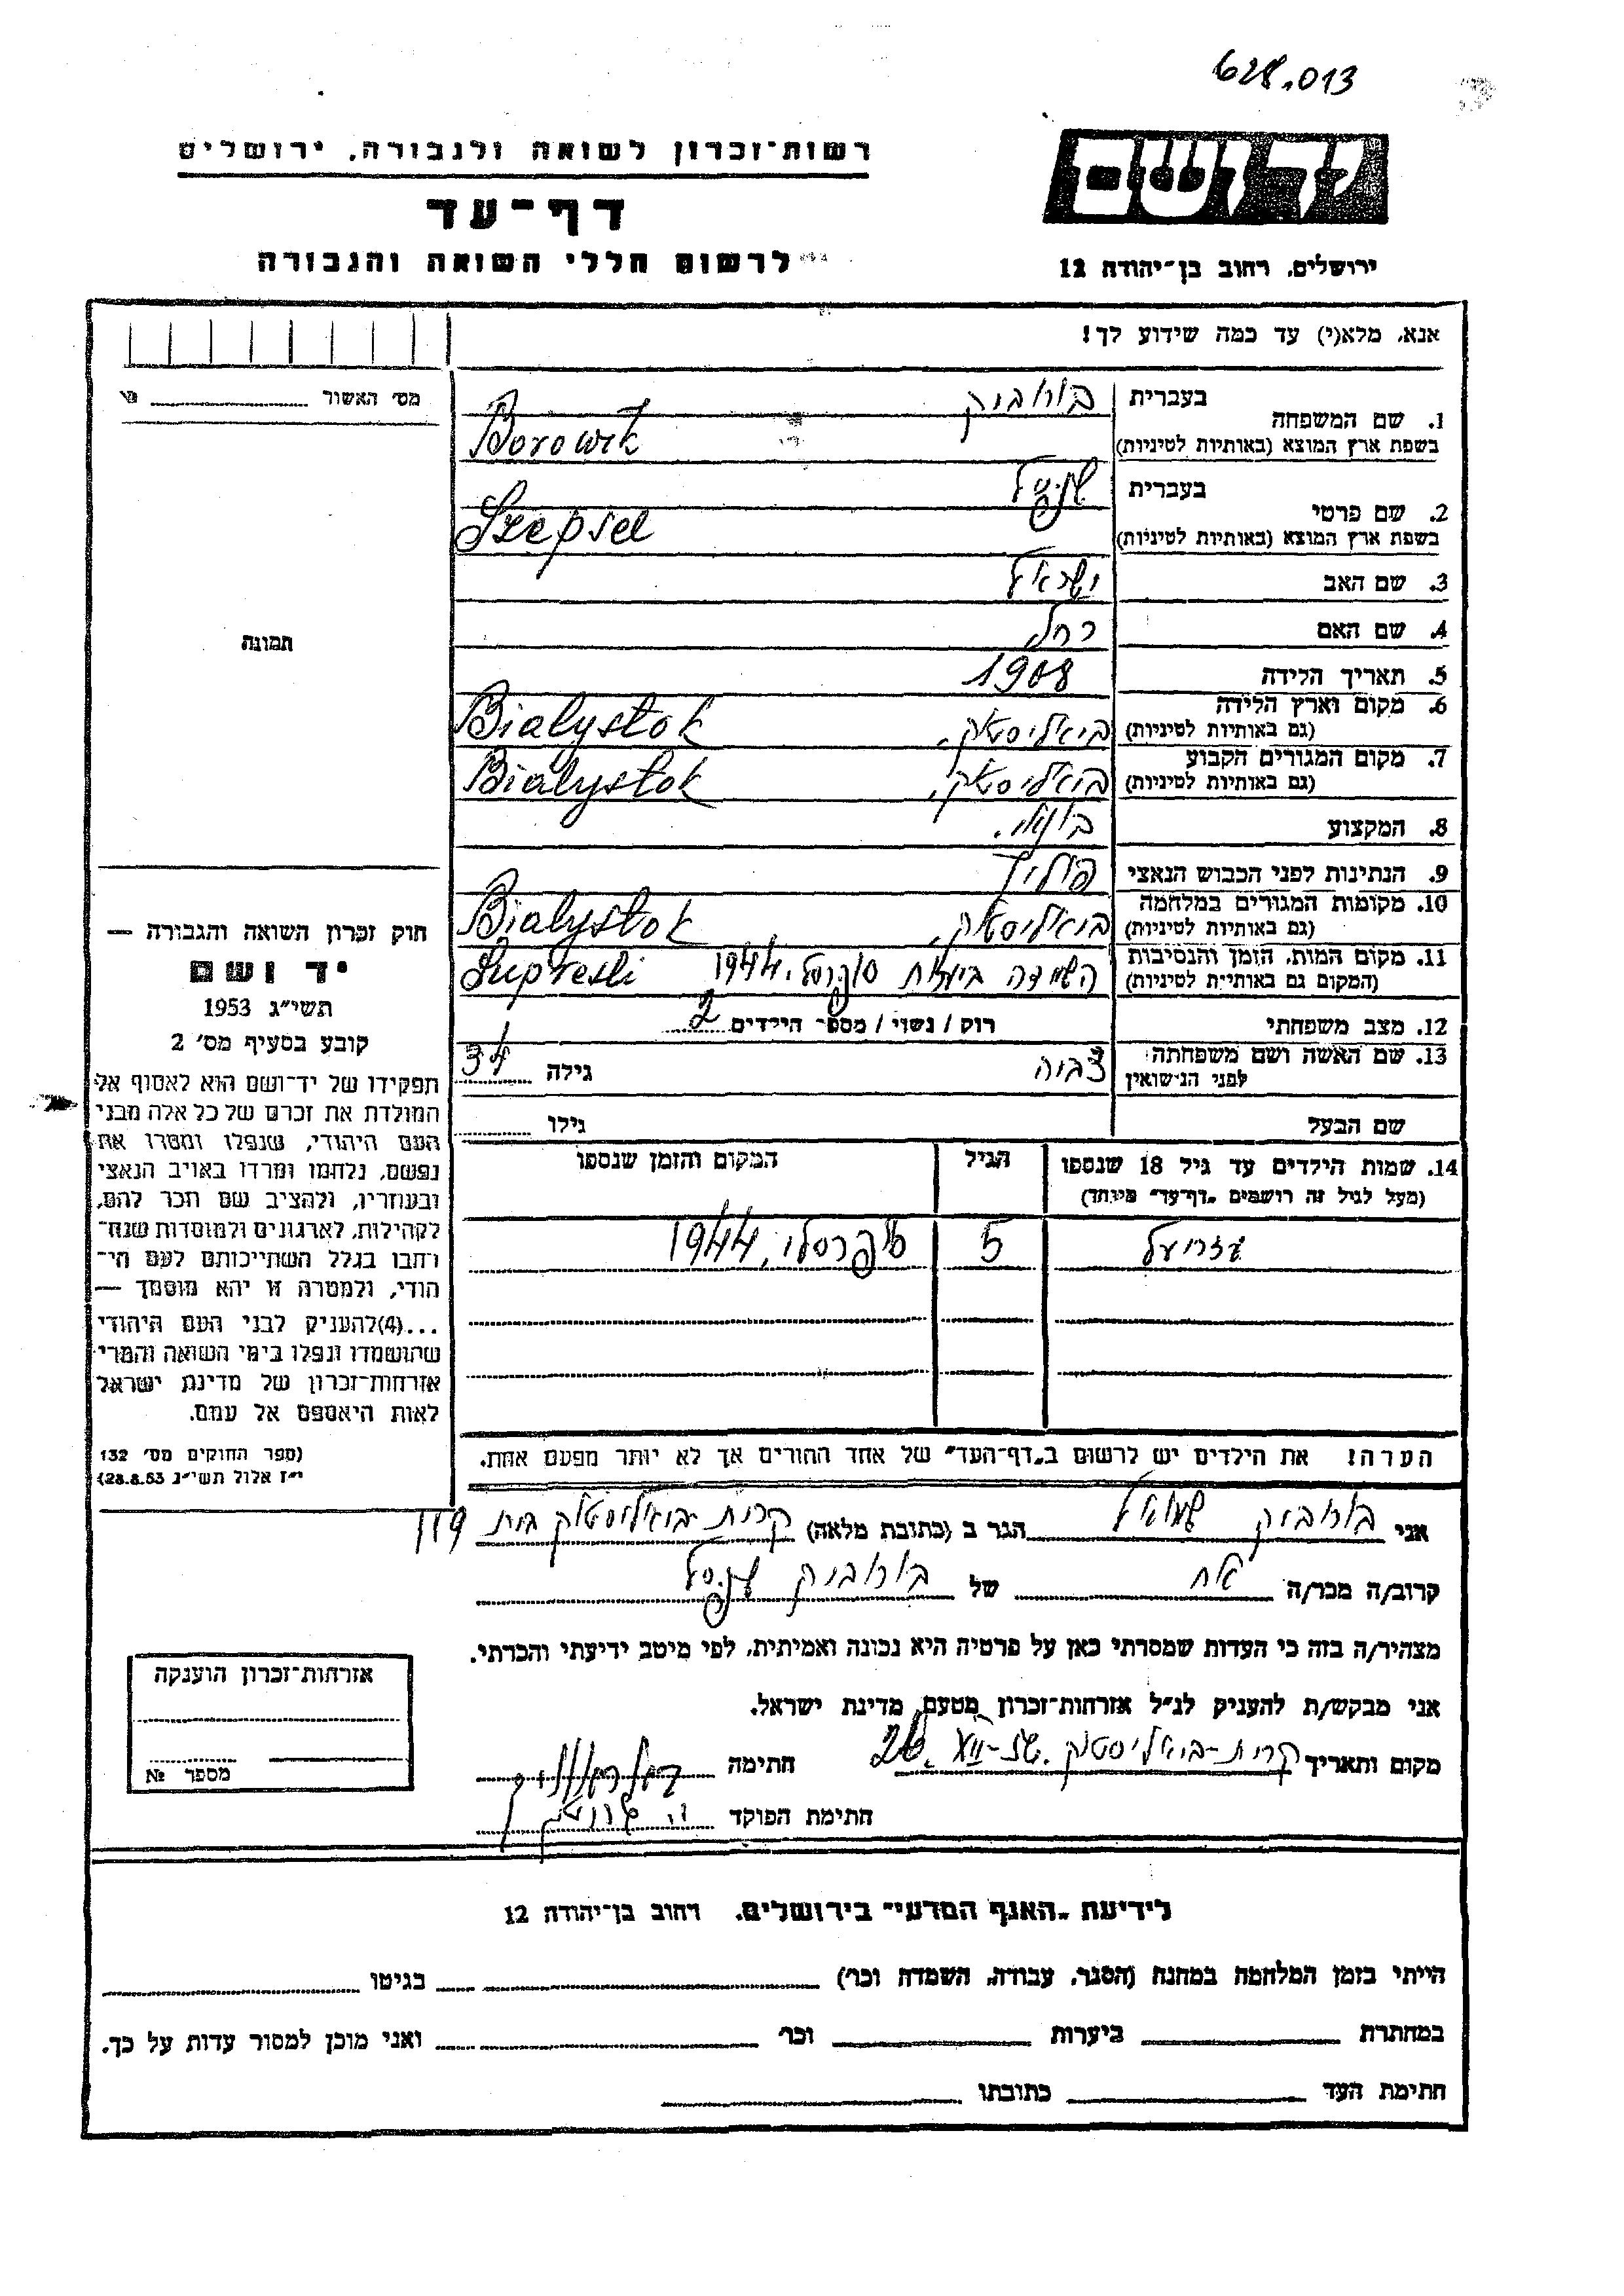 628.013
רשות־זכרון לשואה ולגבורה, ירושלים
דף־עד
לרשום חללי השואה והגבורה
יד ושם
ירושלים, רחוב בן־יהודה 12
אנא, מלא(י) עד כמה שידוע לך!
מס׳ האשור
תמונה
1. שם המשפחה
בעברית בורוביק
בשפת ארץ המוצא (באותיות לטיניות) Borowik
2. שם פרטי
בעברית שפסל
בשפת ארץ המוצא (באותיות לטיניות) Szepsel
3. שם האב ישראל
4. שם האם רחל
5. תאריך הלידה 1908
6. מקום וארץ הלידה
(גם באותיות לטיניות) ביאליסטוק, Bialystok
7. מקום המגורים הקבוע
(גם באותיות לטיניות) ביאליסטוק, Bialystok
8. המקצוע
9. הנתינות לפני הכבוש הנאצי פולין
10. מקומות המגורים במלחמה
(גם באותיות לטיניות) ביאליסטוק, Bialystok
11. מקום המות, הזמן והנסיבות
(המקום גם באותיות לטיניות) השמדה ביערות 1944. Supresli
12. מצב משפחתי רוק / נשוי / מספר הילדים 2
13. שם האשה ושם משפחתה
לפני הנישואין צביה גילה 34
שם הבעל גילו
14. שמות הילדים עד גיל 18 שנספו
(מעל לגיל זה רושמים "דף־עד" מיוחד)
הגיל
המקום והזמן שנספו
עזריעל 5 סופרסלי, 1944
הערה! את הילדים יש לרשום ב"דף־העד" של אחד ההורים אך לא יותר מפעם אחת.
חוק זכרון השואה והגבורה —
יד ושם
תשי״ג 1953
קובע בסעיף מס׳ 2
תפקידו של יד־ושם הוא לאסוף אל
המולדת את זכרם של כל אלה מבני
העם היהודי, שנפלו ומסרו את
נפשם, נלחמו ומרדו באויב הנאצי
ובעוזריו, ולהציב שם וזכר להם,
לקהילות, לארגונים ולמוסדות שנח־
רבו בגלל השתייכותם לעם הי־
הודי, ולמטרה זו יהא מוסמך —
...(4)להעניק לבני העם היהודי
שהושמדו ונפלו בימי השואה והמרי
אזרחות־זכרון של מדינת ישראל
לאות היאספם אל עמם.
(ספר החוקים מס׳ 132
י״ז אלול תשי״ג 28.8.53)
אני בורוביק שמואל הגר ב (כתובת מלאה) קרית-ביאליסטוק בית 119
קרוב/ה מכר/ה אח של בורוביק שפסל
מצהיר/ה בזה כי העדות שמסרתי כאן על פרטיה היא נכונה ואמיתית, לפי מיטב ידיעתי והכרתי.
אני מבקש/ת להעניק לנ״ל אזרחות־זכרון מטעם מדינת ישראל.
מקום ותאריך קרית-ביאליסטוק. חתימה
חתימת הפוקד
אזרחות־זכרון הוענקה
מספר №
לידיעת "האגף המדעי" בירושלים, רחוב בן־יהודה 12
הייתי בזמן המלחמה במחנה (הסגר, עבודה, השמדה וכר׳) בגיטו
במחתרת ביערות וכר׳ ואני מוכן למסור עדות על כך.
חתימת העד כתובתו